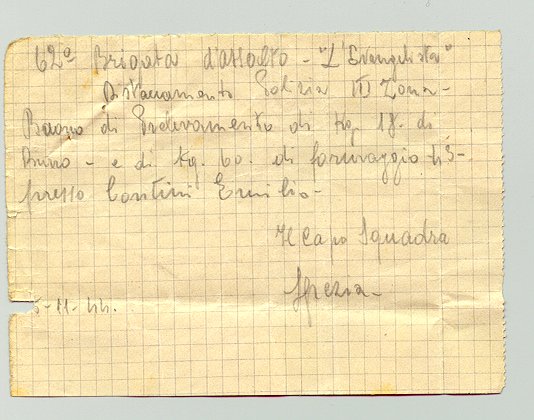 62ª Brigata d'assalto - "L'Evangelista"
Distaccamento Polizia III Zona -
Buono di Prelevamento di Kg. 18. di
Burro - e di Kg. 60. di formaggio 43 -
presso Contini Emilio -
Il Capo Squadra
Spezia -
5-11-44.